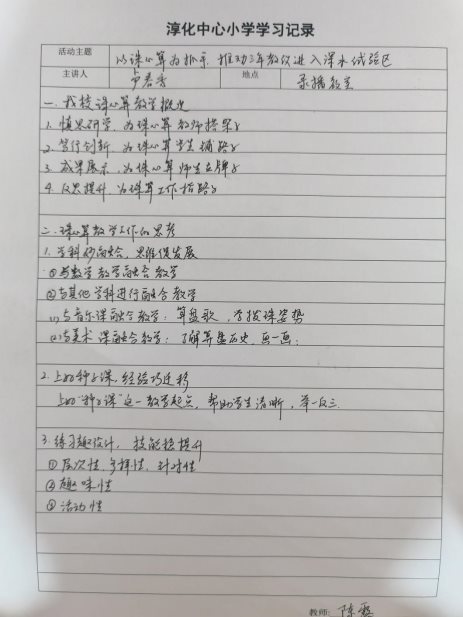 淳化中心小学学习记录
活动主题 以珠心算为抓手,推动三年教改进入深水试验区
主讲人 地点 录播教室
一、我校珠心算教学概况
1. 慎思研学,为珠心算教师搭架子
2. 笃行创新,为珠心算学生铺路子
3. 成果展示,为珠心算师生立牌子
4. 反思提升,为珠算工作指路子
二、珠心算教学工作的思考
1. 学科巧融合,思维促发展
①与数学教学融合教学
②与其他学科进行融合教学
(1)与音乐课融合教学:算盘歌,学拨珠姿势
(2)与美术课融合教学:了解算盘历史,画一画;
2. 上好种子课,经验巧迁移
上好"种子课"这一教学起点,帮助学生清晰,举一反三.
3. 练习趣设计,技能稳提升
①层次性、多样性、针对性
②趣味性
③活动性
教师: 陈